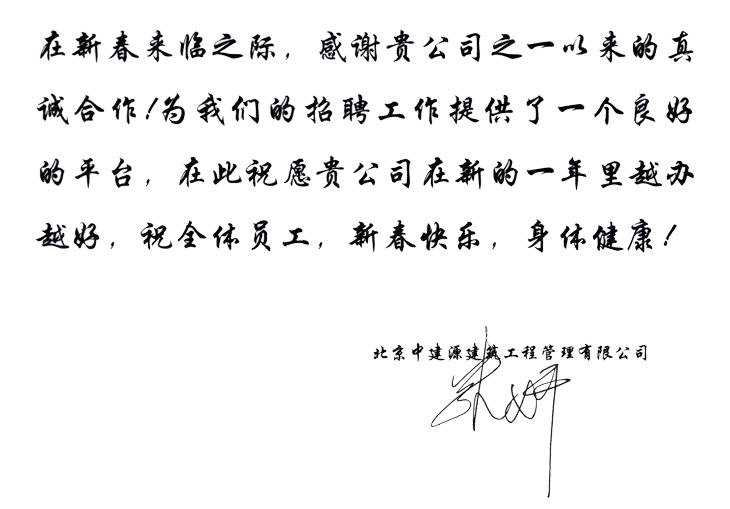 在新春来临之际，感谢贵公司之一以来的真
诚合作!为我们的招聘工作提供了一个良好
的平台，在此祝愿贵公司在新的一年里越办
越好，祝全体员工，新春快乐，身体健康!
北京中建源建筑工程管理有限公司